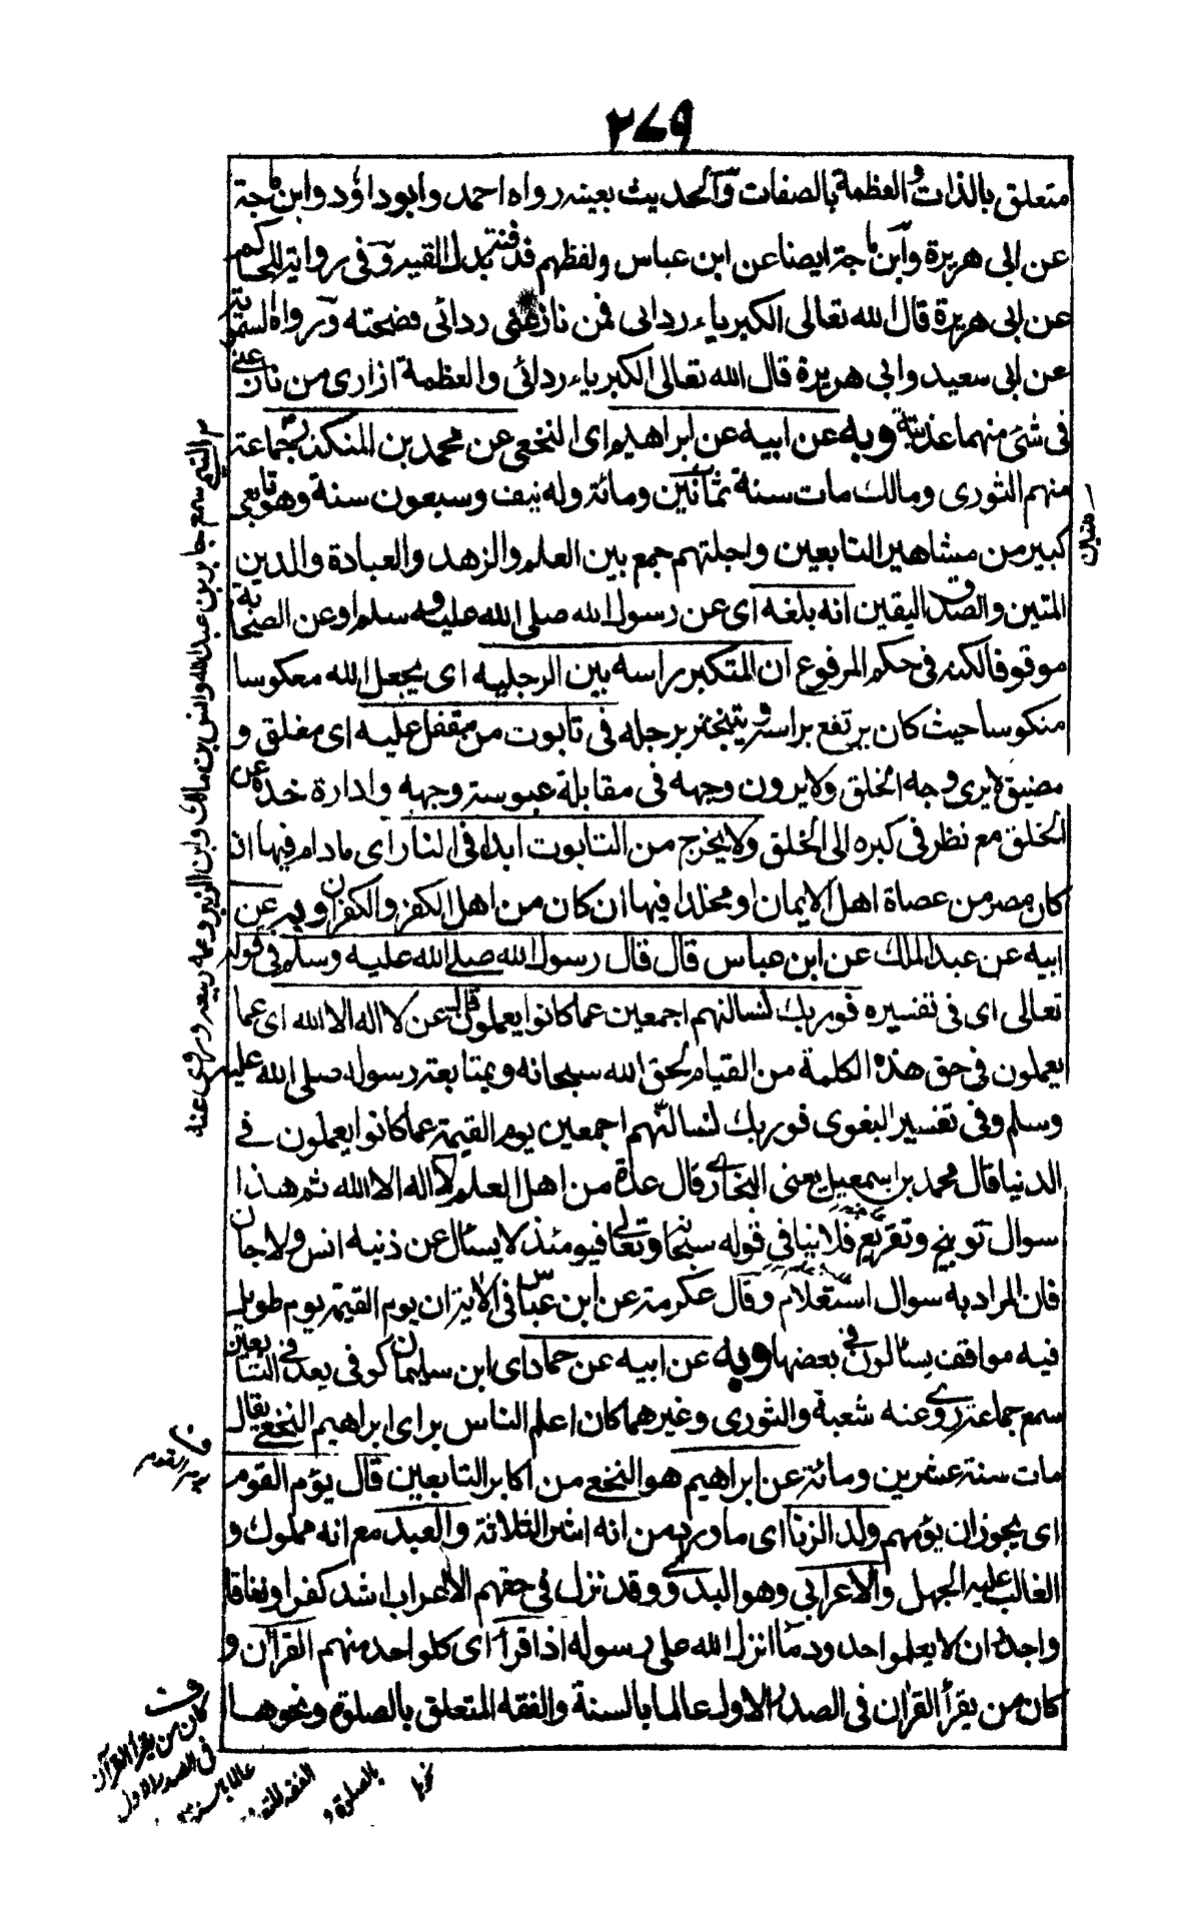 ٢٧٩
متعلق بالذات والعظمة بالصفات والحديث بعينه رواه احمد وابوداؤد وابن ماجة
عن ابى هريرة وابن ماجة ايضا عن ابن عباس ولفظهم قذفته بدل القيد وفى رواية للحاكم
عن ابى هريرة قال الله تعالى الكبرياء ردائى فمن نازعنى ردائى قصمته ورواه سمويه
عن ابى سعيد وابى هريرة قال الله تعالى الكبرياء ردائى والعظمة ازارى من نازعنى
فى شئ منهما عذبته وبه عن ابيه عن ابراهيم اى النخعى عن محمد بن المنكدر جماعة
منهم الثورى ومالك مات سنة ثمانين ومائة وله نيف وسبعون سنة وهو تابعى
كبير من مشاهير التابعين واجلتهم جمع بين العلم والزهد والعبادة والدين
المتين والصدق اليقين انه بلغه اى عن رسول الله صلى الله عليه وسلم او عن الصحابة
موقوفا لكنه فى حكم المرفوع ان المتكبر راسه بين الرجليه اى يجعل الله معكوسا
منكوسا حيث كان يرتفع براسه ويتبختر برجله فى تابوت من مقفل عليه اى مغلق و
مضيق لا يرى وجه الخلق ولا يرون وجهه فى مقابلة عبوسة وجهه وادارة خده عن
الخلق مع نظر فى كبره الى الخلق ولا يخرج من التابوت ابدا فى النار اى مادام فيها ان
كان مصر من عصاة اهل الايمان او مخلدا فيها ان كان من اهل الكفر والكفران وبه عن
ابيه عن عبد الملك عن ابن عباس قال قال رسول الله صلى الله عليه وسلم فى قوله
تعالى اى فى تفسيره فوربك لنسالنهم اجمعين عما كانوا يعملون قال عن لا اله الا الله اى عما
يعملون فى حق هذه الكلمة من القيام لحق الله سبحانه وبمتابعة رسوله صلى الله عليه
وسلم وفى تفسير البغوى فوربك لنسالنهم اجمعين يوم القيمة عما كانوا يعملون فى
الدنيا قال محمد بن اسمعيل يعنى البخارى قال عدة من اهل العلم لا اله الا الله ثم هذا
سوال توبيخ وتقريع فلا ينافى قوله سبحانه وتعالى فيومئذ لا يسئال عن ذنبه انس ولا جان
فان المراد به سوال استعلام وقال عكرمة عن ابن عباس فى الاية ان يوم القيمة يوم طويل
فيه مواقف يسالون فى بعضها وبه عن ابيه عن حماد اى ابن سليمان كوفى يعد فى التابعين
سمع جماعة روى عنه شعبة والثورى وغيرهما كان اعلم الناس براى ابراهيم النخعى يقال
مات سنة عشرين ومائة عن ابراهيم هو النخعى من اكابر التابعين قال يؤم القوم
اى يجوز ان يؤمهم ولد الزنا اى ما ورد به من انه اشر الثلاثة والعبد مع انه مملوك و
الغالب عليه الجهل والاعرابى وهو البدوى وقد نزل فى حقهم الاعراب اشد كفرا ونفاقا
واجدر ان لا يعلموا حدود ما انزل الله على رسوله اذا قرأ اى كلواحد منهم القرآن و
كان من يقرأ القرآن فى الصدر الاول عالما بالسنة والفقه المتعلق بالصلوة ونحوها
سمع جابر بن عبد الله وانس بن مالك وابن الزبير وعمه ربيعه وروى عنه
ف
كان من يقرأ القرآن
فى الصدر الاول
عالما بالسنة
الفقه
بالصلوة و